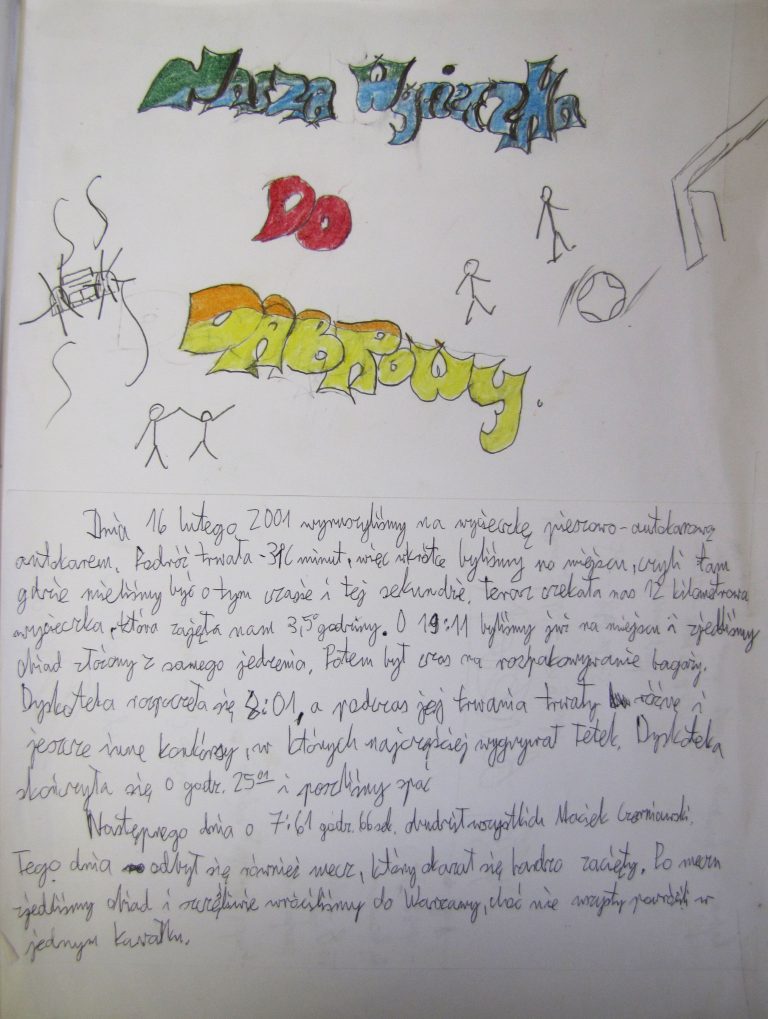 Nasza Wycieczka
Do
DĄBROWY.
Dnia 16 lutego 2001 wyruszyliśmy na wycieczkę pieszowo-autokarową
autokarem. Podróż trwała minut, więc wkrótce byliśmy na miejscu, czyli tam
gdzie mieliśmy być o tym czasie i tej sekundzie. teraz czekała nas 12 kilometrowa
wycieczka, która zajęła nam 3,5 godziny. O 19:11 byliśmy już na miejscu i zjedliśmy
obiad złożony z samego jedzenia. Potem był czas na rozpakowywanie bagaży.
Dyskoteka rozpoczęła się 8:01, a podczas jej trwania trwały różne i
jeszcze inne konkórsy, w których najczęściej wygrywał Tetek. Dyskoteka
skończyła się o godz. 25⁰¹ i poszliśmy spać
Następnego dnia o 7:61 godz. 66 sek. obudził wszystkich Maciek Czerniawski.
Tego dnia odbył się również mecz, który okazał się bardzo zacięty. Po meczu
zjedliśmy obiad i szczęśliwie wróciliśmy do Warszawy, choć nie wszyscy powrócili w
jednym kawałku.